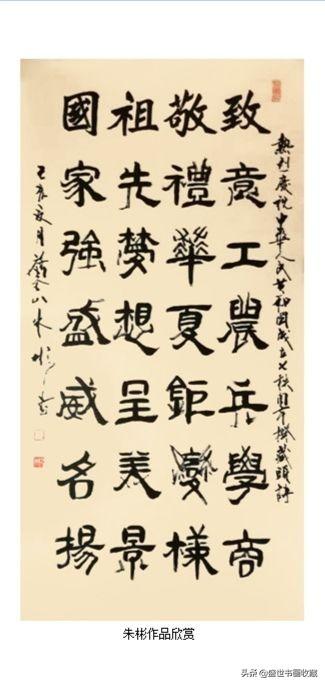 熱烈慶祝中華人民共和國成立七秩周年撰藏頭詩
致意工農兵學商
敬禮華夏鉅變樣
祖先夢想呈美景
國家強盛威名揚
己亥夏月
朱彬作品欣赏
头条 @盛世书画收藏